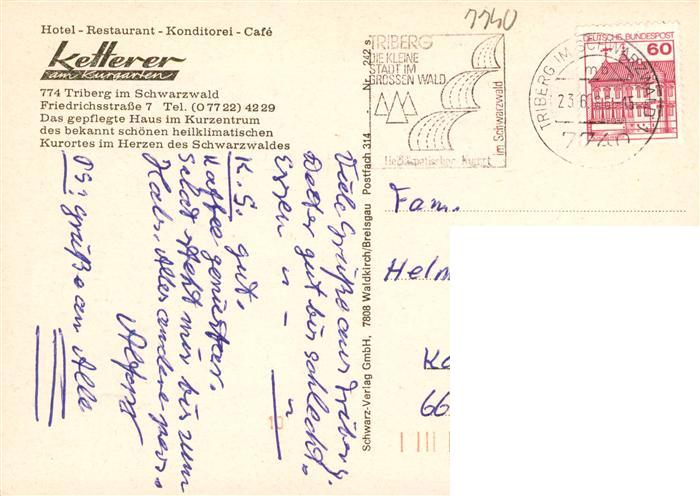 Hotel - Restaurant - Konditorei - Café
Ketterer
am Kurgarten
774 Triberg im Schwarzwald
Friedrichsstraße 7 Tel. (0 77 22) 42 29
Das gepflegte Haus im Kurzentrum
des bekannt schönen heilklimatischen
Kurortes im Herzen des Schwarzwaldes
Viele Grüße aus Triberg.
Wetter gut bis schlecht.
Essen " - "
K.S. gut.
Kaffee
Salat steht mir bis zum
Hals. Alles andere
Alfons
PS: grüße an Alle
Schwarz-Verlag GmbH, 7808 Waldkirch/Breisgau Postfach 314 Nr. 242 s
7740
TRIBERG
DIE KLEINE
STADT IM
GROSSEN WALD
Heilklimatischer Kurort
im Schwarzwald
TRIBERG IM SCHWARZWALD
mb
23.6
7740
DEUTSCHE BUNDESPOST
60
Fam.
Helm
66
10